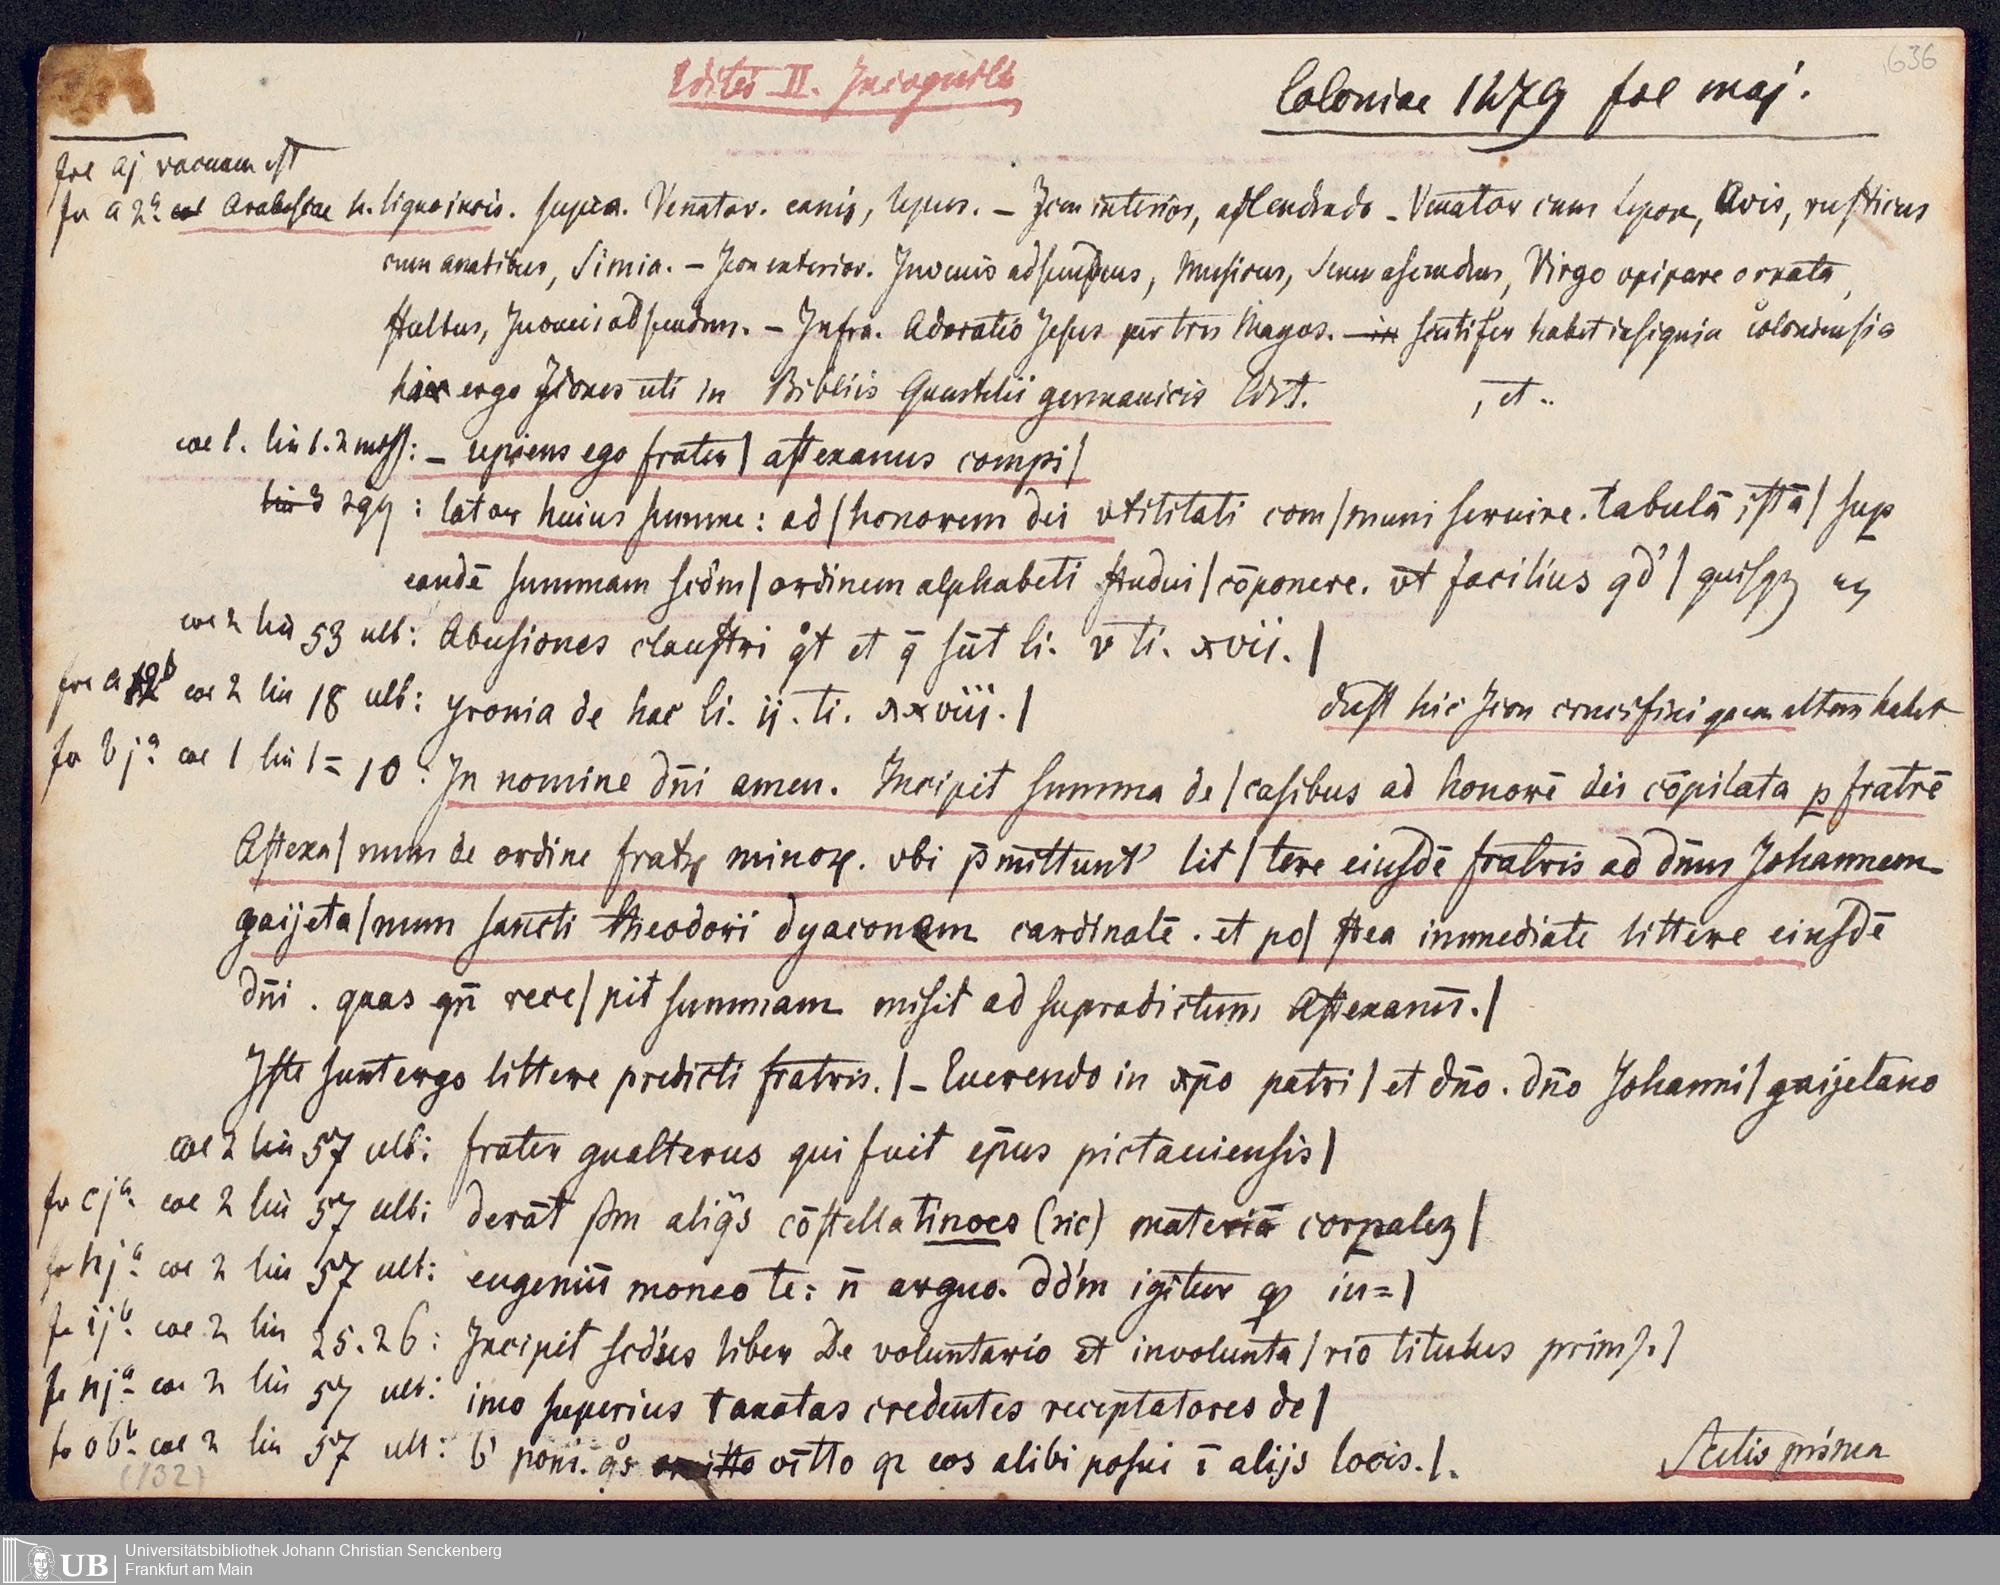 636
Editio II. Incognita
Coloniae 1479 fol maj.
fol aj vacuum est
fo a 2ª Arabescae h. lignoincis. supra. Venator. canis, lepus. – Icon interior, – Venator cum lepore, Avis, rusticus
cum anatibus, Simia. – Icon exterior. Juvenis adscendens, Musicus, Senex ascendens, Virgo opipare ornata,
stultus, Juvenis adscendens. – Infra. Adoratio Jesus per tres Magos. – habet insignia Coloniensia
ergo Icones uti in Bibliis Quentelii germanicis Edit. , et ..
col 1. lin 1. 2 miss: – cupiens ego frater| astexanus compi|
lin 3 sqq : lator huius summe: ad|honorem dei vtilitati com|muni seruire. tabulā istā| sup
eandē summam scdm| ordinem alphabeti studui| cōponere. vt facilius qd'| quisqz
col 2 lin 53 ult: Abusiones claustri qt et q̄ sūt li. v ti. xvii.|
fol a 12b col 2 lin 18 ult: yronia de hac li. ij. ti. xxviij.|
deest hic Icon crucifixi quem alterum habet
fo b jª col 1 lin 1= 10: In nomine dn̄i amen. Incipit summa de|casibus ad honorē dei cōpilata p fratrē
Astexa|num de ordine fratꝝ minoꝝ. vbi p̄mittunt' lit|tere eiusdē fratris ad dn̄m Johannem
gaijeta|num sancti theodori dyaconem cardinalē. et po|stea immediate littere eiusdē
dn̄i. quas qn̄ rece|pit summam misit ad supradictum Astexanū.|
Iste sunt ergo littere predicti fratris.|– Euerendo in xp̄o patri| et dn̄o. dn̄o Johanni|gaijetano
col 2 lin 57 ult: frater gualterus qui fuit ep̄us pictauiensis|
fo cjª col 2 lin 57 ult: derāt sm aliqs cōstellatinoes (sic) materiā corpalez|
fo hjª col 2 lin 57 ult: eugeniū moneo te: n̄ arguo. dd'm igitur qꝫ in=|
fo ijb. col 2 lin 25.26: Incipit scd'us liber De voluntario et involunta|rio titulus prim9.|
fo njª col 2 lin 57 ult: imo superius taxatas credentes receptatores de|
fo o6b col 2 lin 57 ult: b' poni. qs omitto vītto qꝛ eos alibi posui ī alijs locis.|.
(132)
UB Universitätsbibliothek Johann Christian Senckenberg
Frankfurt am Main